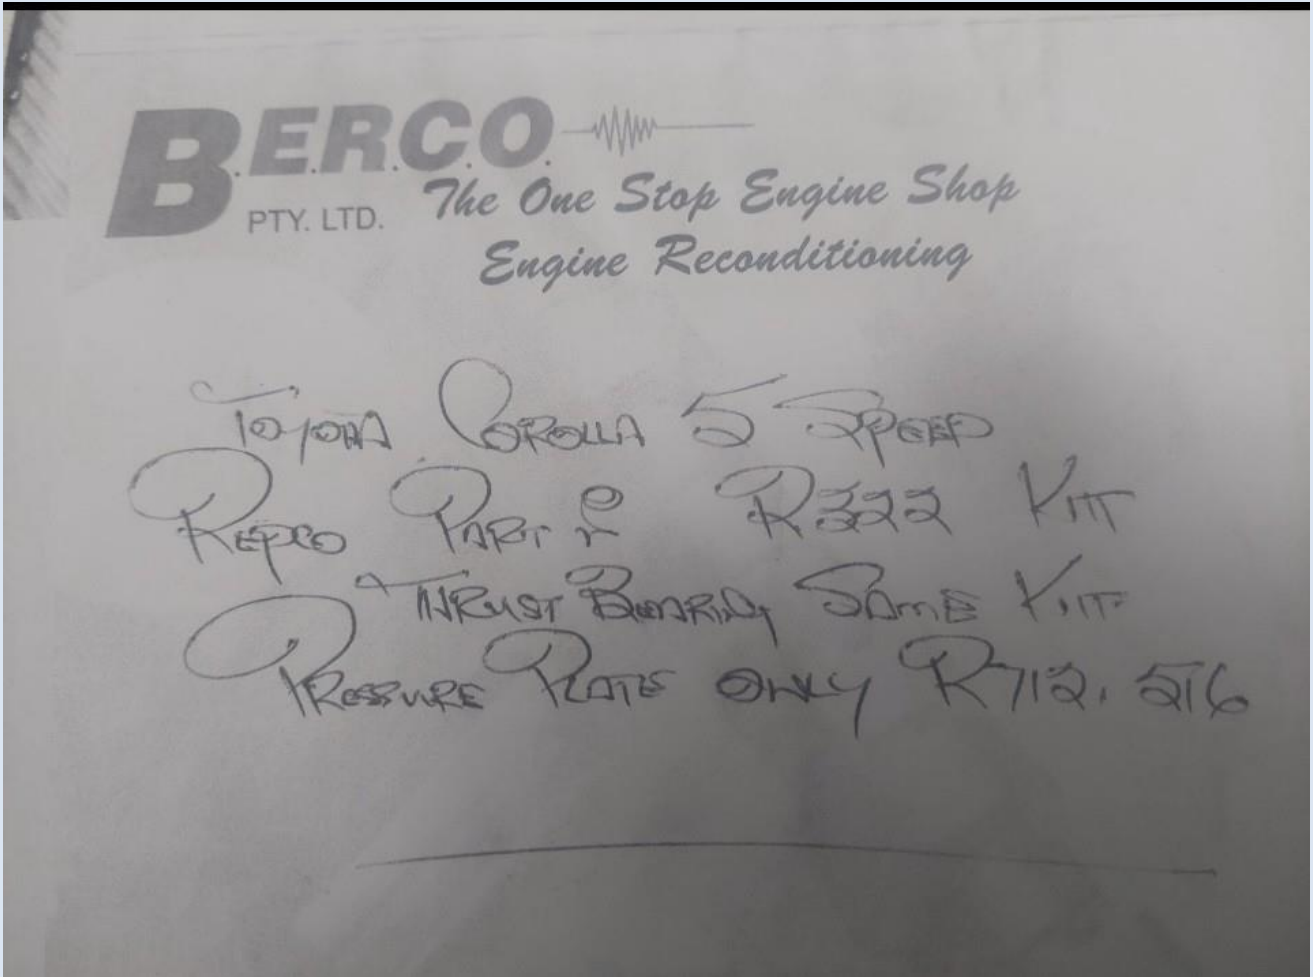 B.E.R.C.O.
PTY. LTD. The One Stop Engine Shop
Engine Reconditioning
TOYOTA COROLLA 5 SPEED
REPCO PART R322 KIT
THRUST BEARING SAME KIT
PRESSURE PLATE ONLY R712. 516